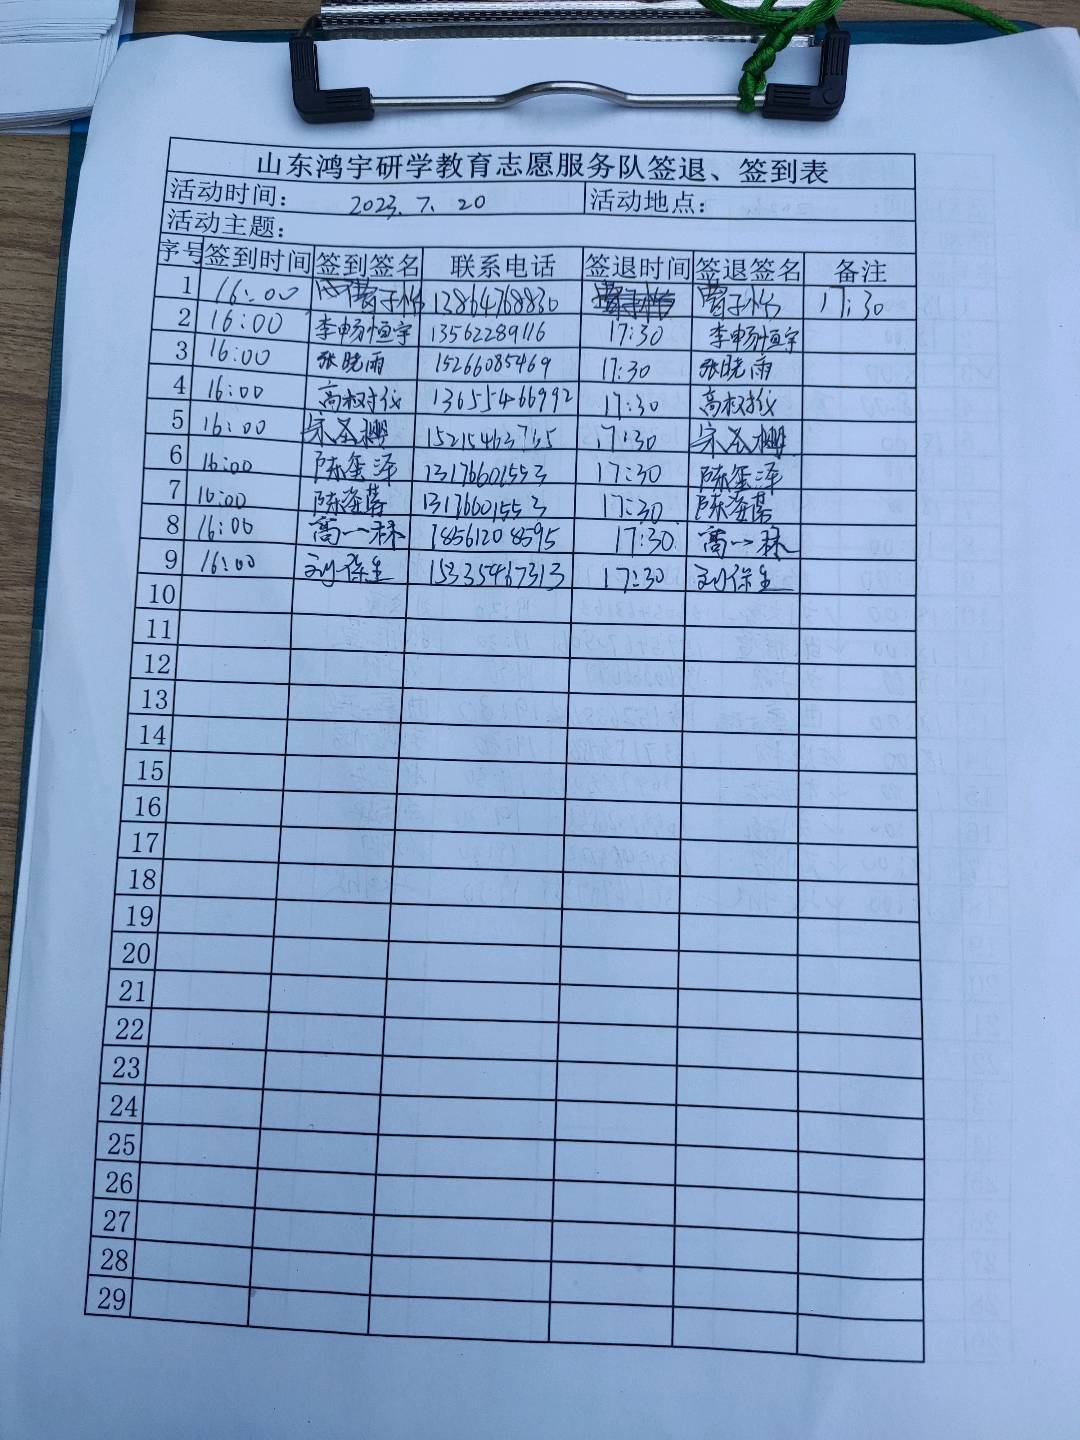 山东鸿宇研学教育志愿服务队签退、签到表
活动时间： 2023.7.20 活动地点：
活动主题：
序号 签到时间 签到签名 联系电话 签退时间 签退签名 备注
1 16:00 子怡 13864768830 子怡 17:30
2 16:00 李畅恒宇 13562289116 17:30 李畅恒宇
3 16:00 张晓雨 15266085469 17:30 张晓雨
4 16:00 高树仪 13655466992 17:30 高树仪
5 16:00 宋圣樱 17:30 宋圣樱
6 16:00 陈玺泽 13176601553 17:30 陈玺泽
7 16:00 陈 13176601553 17:30 陈
8 16:00 高一禄 18561208595 17:30 高一禄
9 16:00 刘保生 15335467313 17:30 刘保生
10
11
12
13
14
15
16
17
18
19
20
21
22
23
24
25
26
27
28
29